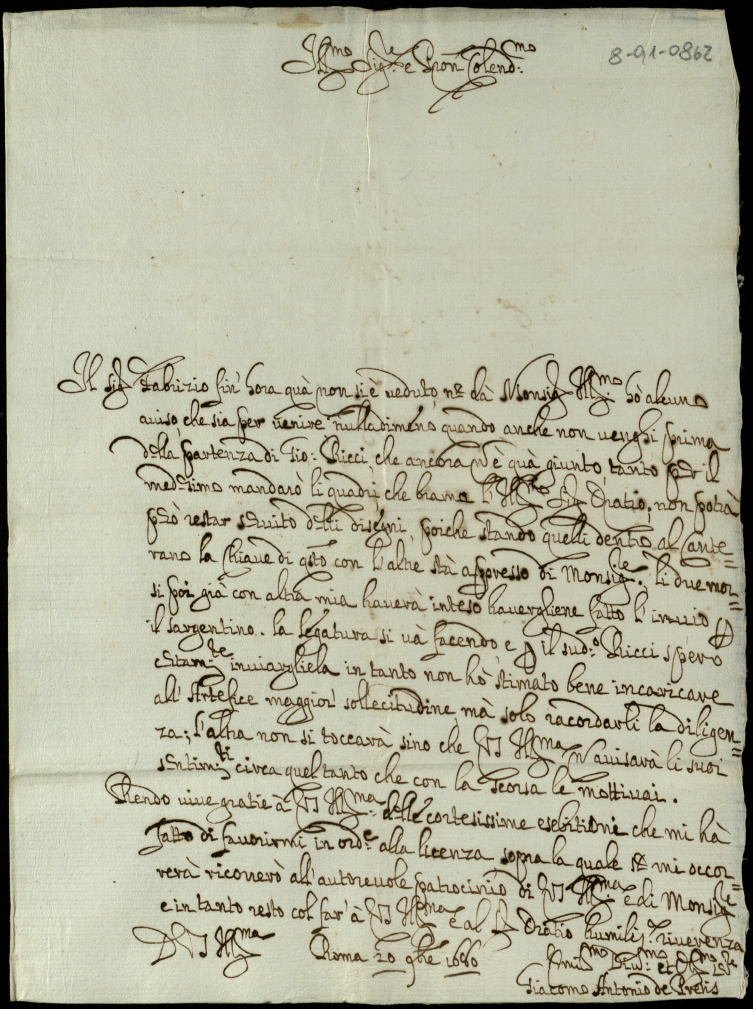 8-91-0862
Ill.mo Sig.re e Pron Colend.mo
Il sig.r Fabrizio fin' hora quà non si è veduto, nè dà Monsig.r Ill.mo hò alcuno
aviso che sia per venire nulladimeno quando anche non venghi prima
della partenza di Gio: Ricci, che ancora n è quà giunto tanto per il
medesimo mandarò li quadri, che brama l' Ill.mo Sig.r Oratio, non potrà
però restar servito delli disegni, poiche stando quelli dentro al Cante=
rano la Chiave di q.sto con l'altre stà appresso di Monsig.re. li due mor=
si poi già con altra mia haverà inteso havergliene fatto l' inuio p
il sargentino. la legatura si và facendo e p il sud.o Ricci spero
certam.te inviargliela in tanto non hò stimato bene incaricare
all' Artefice maggior sollecitudine, mà solo racordarli la diligen=
za; l'altra non si toccarà sino che VS Ill.ma n avisarà li suoi
sentim.ti circa quel tanto che con la scorsa le mottivai.
Rendo vive gratie à VS Ill.ma delle cortesissime esebitioni che mi hà
fatto di favorirmi in ord.e alla licenza sopra la quale se mi occor=
rerà ricorrerò all' autorevole patrocinio di VS Ill.ma e di Monsig.re
e in tanto resto col far' à VS Ill.ma e al S.r Oratio humiliss.a riverenza
D VS Ill.ma Roma 20 9bre 1686
Humil.mo Div.mo et Obl.mo Ser.re
Giacomo Antonio de Pretis